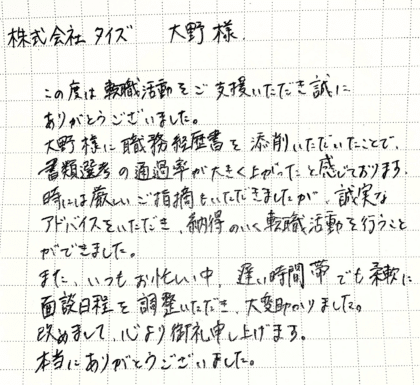 株式会社タイズ　大野様
この度は転職活動をご支援いただき誠に
ありがとうございました。
大野様に職務経歴書を添削いただいたことで、
書類選考の通過率が大きく上がったと感じております。
時には厳しいご指摘もいただきましたが、誠実な
アドバイスをいただき、納得のいく転職活動を行うこと
ができました。
また、いつもお忙しい中、遅い時間帯でも柔軟に
面談日程を調整いただき、大変助かりました。
改めまして、心より御礼申し上げます。
本当にありがとうございました。